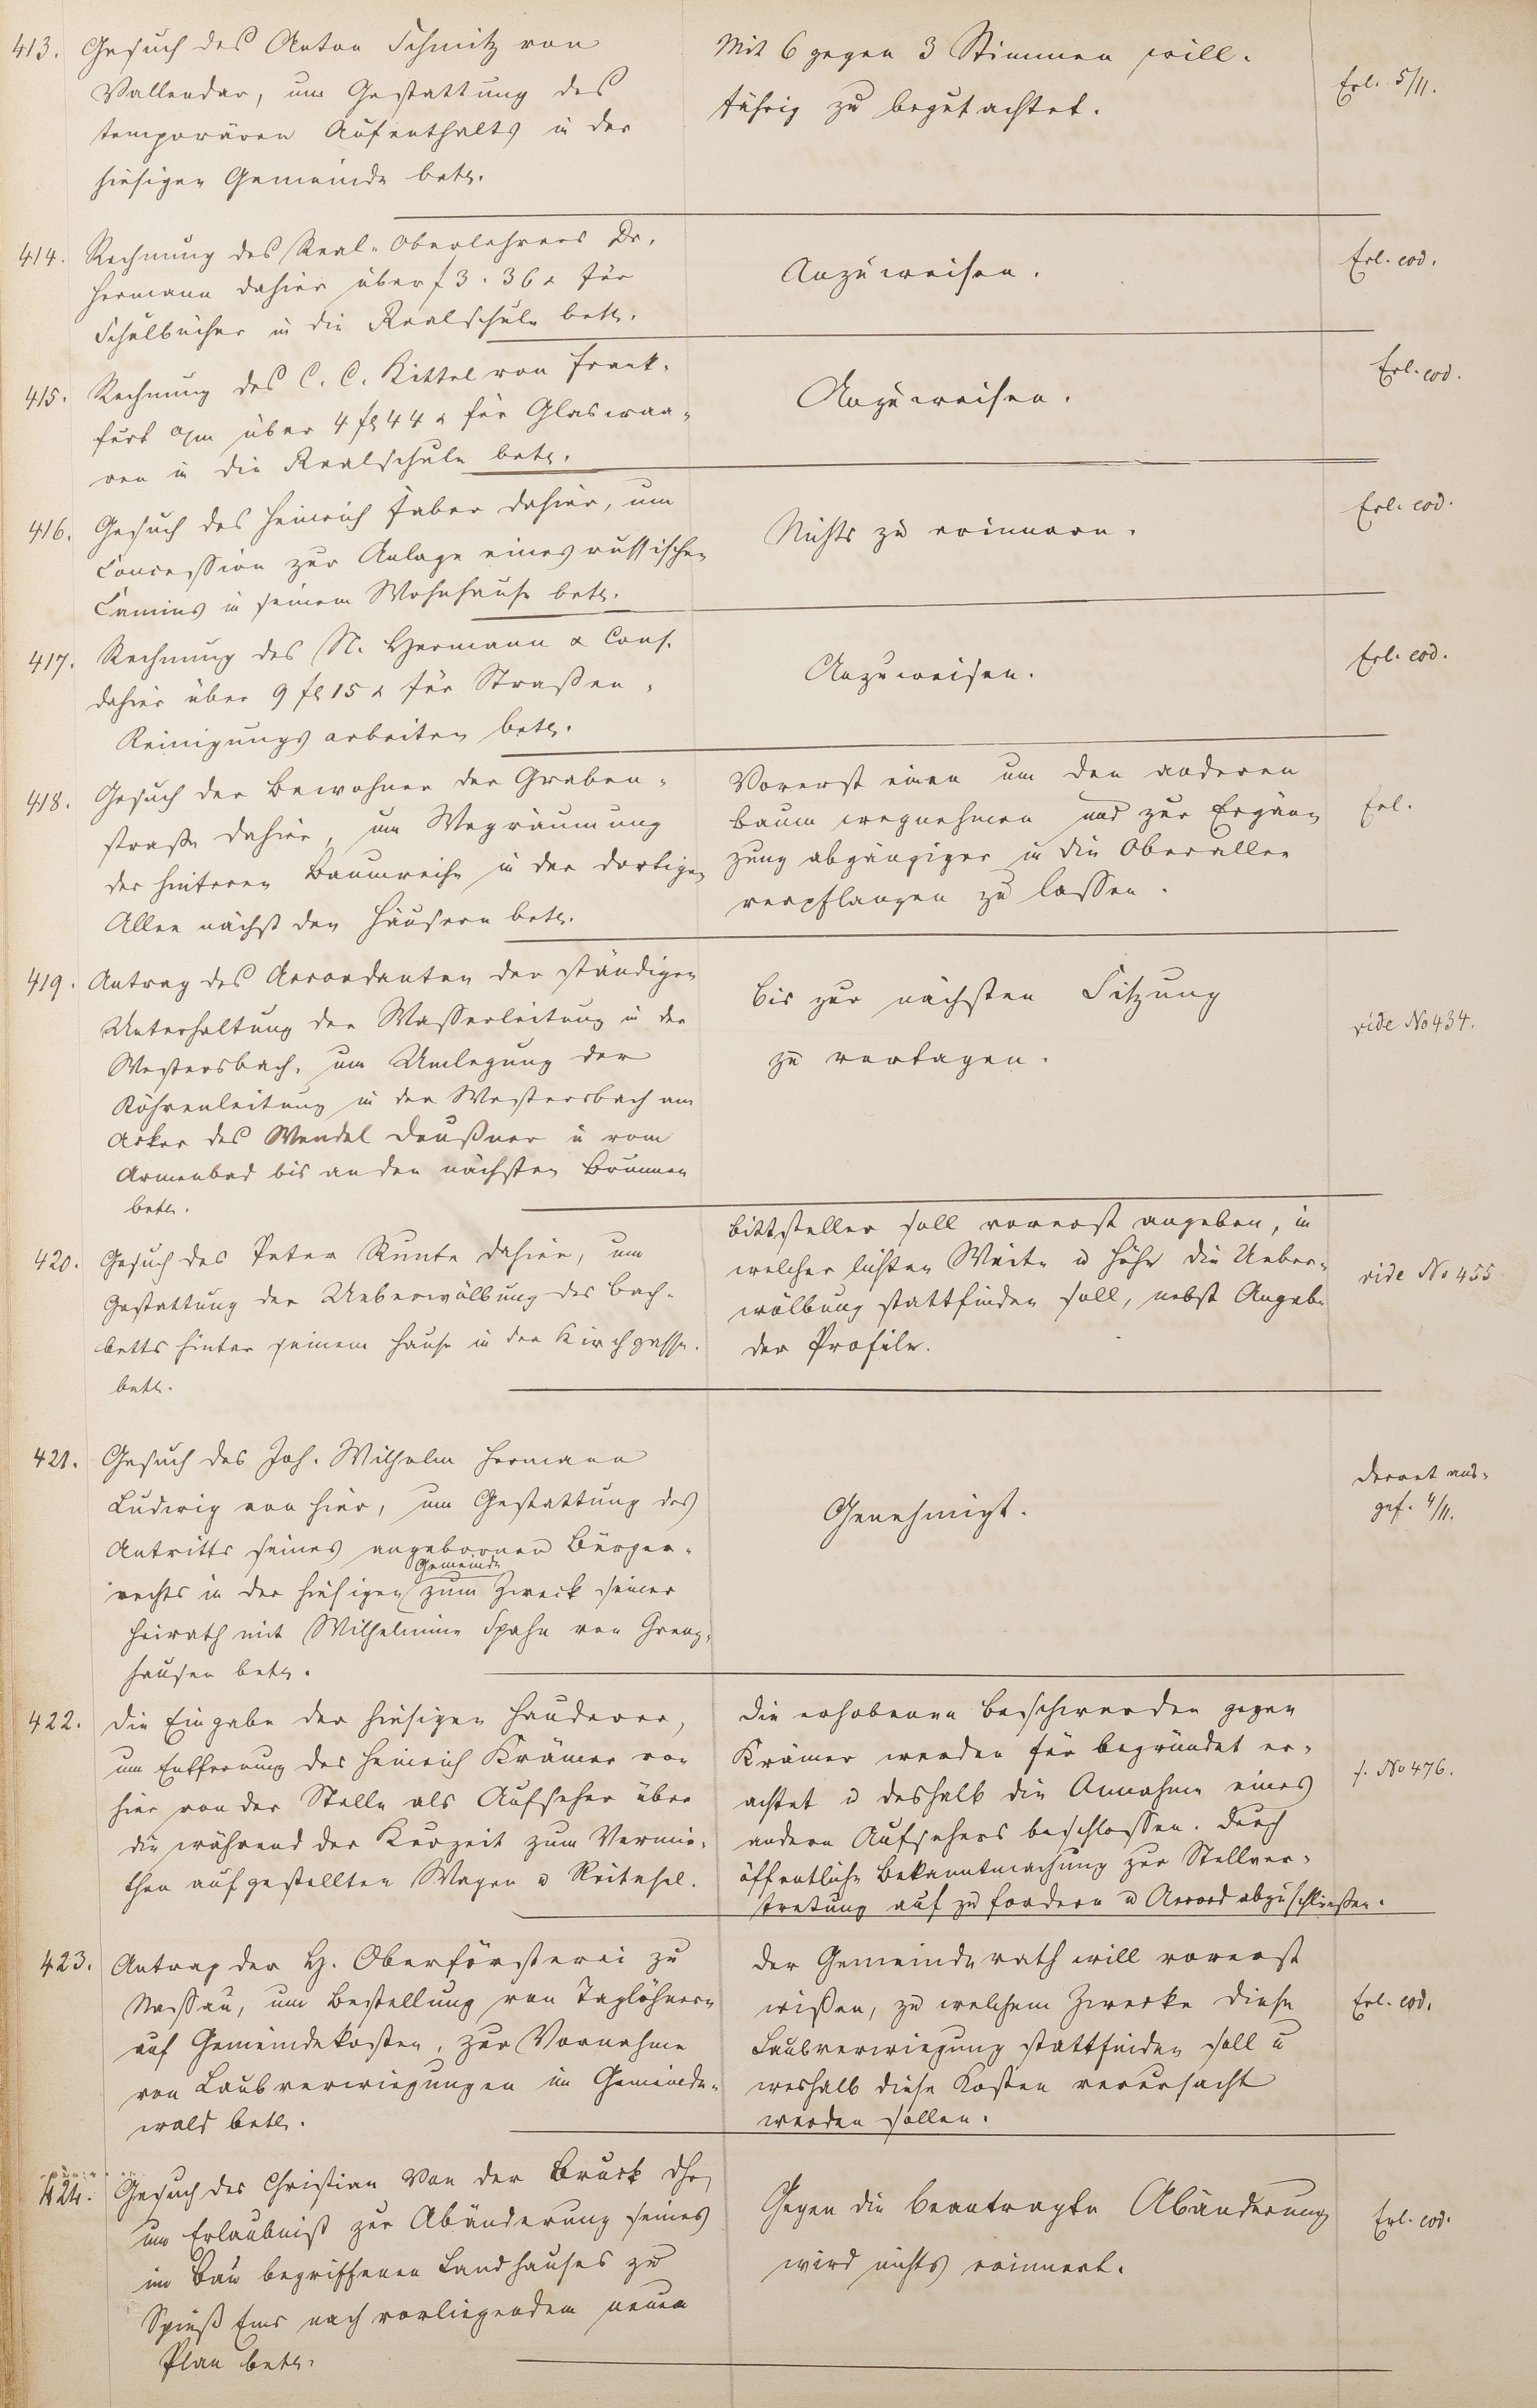 413. Gesuch des Anton Schmitz von
Vallendar, um Gestattung des
temporären Aufenthalts in der
hiesigen Gemeinde betr.
Mit 6 gegen 3 Stimmen will-
fährig zu begutachtet.
Erl. 5/11.
414. Rechnung des Real-Oberlehrers Dr.
Hermann dahier über f 3. 36 x für
Schulbücher in die Realschule betr.
Anzuweisen.
Erl. eod.
415. Rechnung des C. C. Kittel von Frank-
furt a/m über 4 fl 44 x für Glaswaa-
ren in die Realschule betr.
Anzuweisen.
Erl. eod.
416. Gesuch des Heinrich Faber dahier, um
Concession zur Anlage eines russischen
Camins in seinem Wohnhause betr.
Nichts zu erinnern.
Erl. eod.
417. Rechnung des N. Hermann & Cons.
dahier über 9 fl 15 x für Straßen-
Reinigungsarbeiten betr.
Anzuweisen.
Erl. eod.
418. Gesuch der Bewohner der Graben-
straße dahier, um Wegräumung
der hinteren Baumreihe in der dortigen
Allee nächst den Häusern betr.
Vorerst einen um den anderen
Baum wegnehmen und zur Ergän-
zung abgängiger in die Oberallee
verpflanzen zu lassen.
Erl.
419. Antrag des Accordanten der ständigen
Unterhaltung der Wasserleitung in der
Westersbach, um Umlegung der
Röhrenleitung in der Westersbach am
Acker des Wendel Deußner u vom
Armenbad bis an den nächsten Brunnen
betr.
Bis zur nächsten Sitzung
zu vertagen.
vide No 434.
420. Gesuch des Peter Runte dahier, um
Gestattung der Ueberwölbung des Bach-
betts hinter seinem Hause in der Kirchgasse.
betr.
Bittsteller soll vorerst angeben, in
welcher lichten Weite u Höhe die Ueber-
wölbung stattfinden soll, nebst Angabe
der Profile.
vide No 455
421. Gesuch des Joh. Wilhelm Hermann
Ludwig von hier, um Gestattung des
Antritts seines angebornen Bürger-
rechts in der hiesigen Gemeinde zum Zweck seiner
Heirath mit Wilhelmine Spahn von Grenz-
hausen betr.
Genehmigt.
Decret aus-
gef. 4/11.
422. Die Eingabe der hiesigen Hauderer,
um Entfernung des Heinrich Krämer von
hier von der Stelle als Aufseher über
die während der Kurzeit zum Vermie-
then aufgestellten Wagen u Reitesel.
Die erhobenen Beschwerden gegen
Krämer werden für begründet er-
achtet u deshalb die Annahme eines
andern Aufsehers beschlossen. Durch
öffentliche Bekanntmachung zur Stellver-
tretung auf zu fordern u Accord abzuschließen.
s. No 476.
423. Antrag der H. Oberförsterei zu
Nassau, um Bestellung von Taglöhnern
auf Gemeindekosten, zur Vornahme
von Laubverwiegungen im Gemeinde-
wald betr.
Der Gemeinderath will vorerst
wißen, zu welchem Zwecke diese
Laubverwiegung stattfinden soll u
weshalb diese Kosten verursacht
werden sollen.
Erl. eod.
424. Gesuch des Christian Von der Bruck dhr,
um Erlaubniß zur Abänderung seines
im Bau begriffenen Landhauses zu
Spieß Ems nach vorliegendem neuen
Plan betr.
Gegen die beantragte Abänderung
wird nichts erinnert.
Erl. eod.